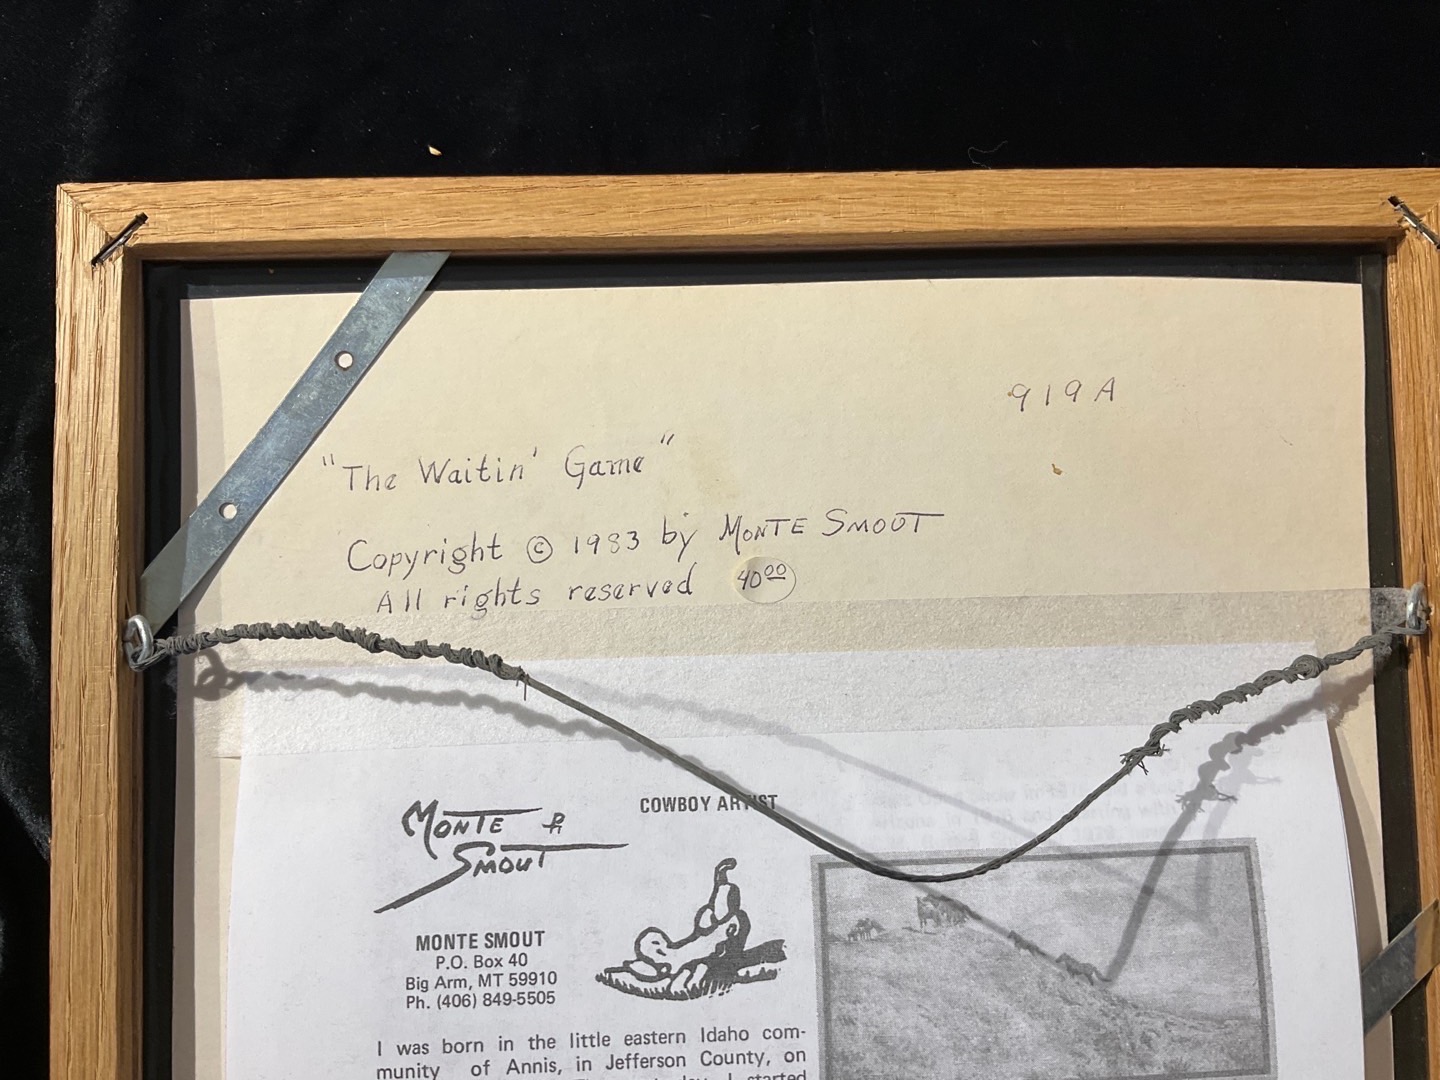 919A
"The Waitin' Game"
Copyright © 1983 by MONTE SMOUT
All rights reserved 40⁰⁰
MONTE
SMOUT
COWBOY ARTIST
MONTE SMOUT
P.O. Box 40
Big Arm, MT 59910
Ph. (406) 849-5505
I was born in the little eastern Idaho com-
munity of Annis, in Jefferson County, on
I started